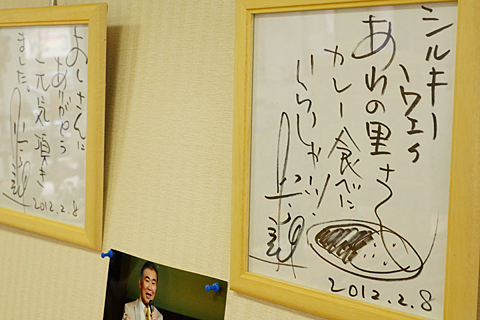 よしさんに
ありがとう
と元気頂き
ました。
2012.2.8
シルキー
ハウエイ
あわの里さ
カレー食べに
いらっしゃーい!
2012.2.8